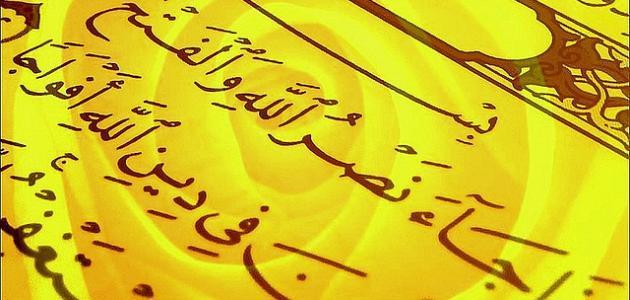 بِسْـ
جَآءَ نَصْرُ ٱللَّهِ وَٱلْفَتْحُ
نَ فِي دِينِ ٱللَّهِ أَفْوَاجًا